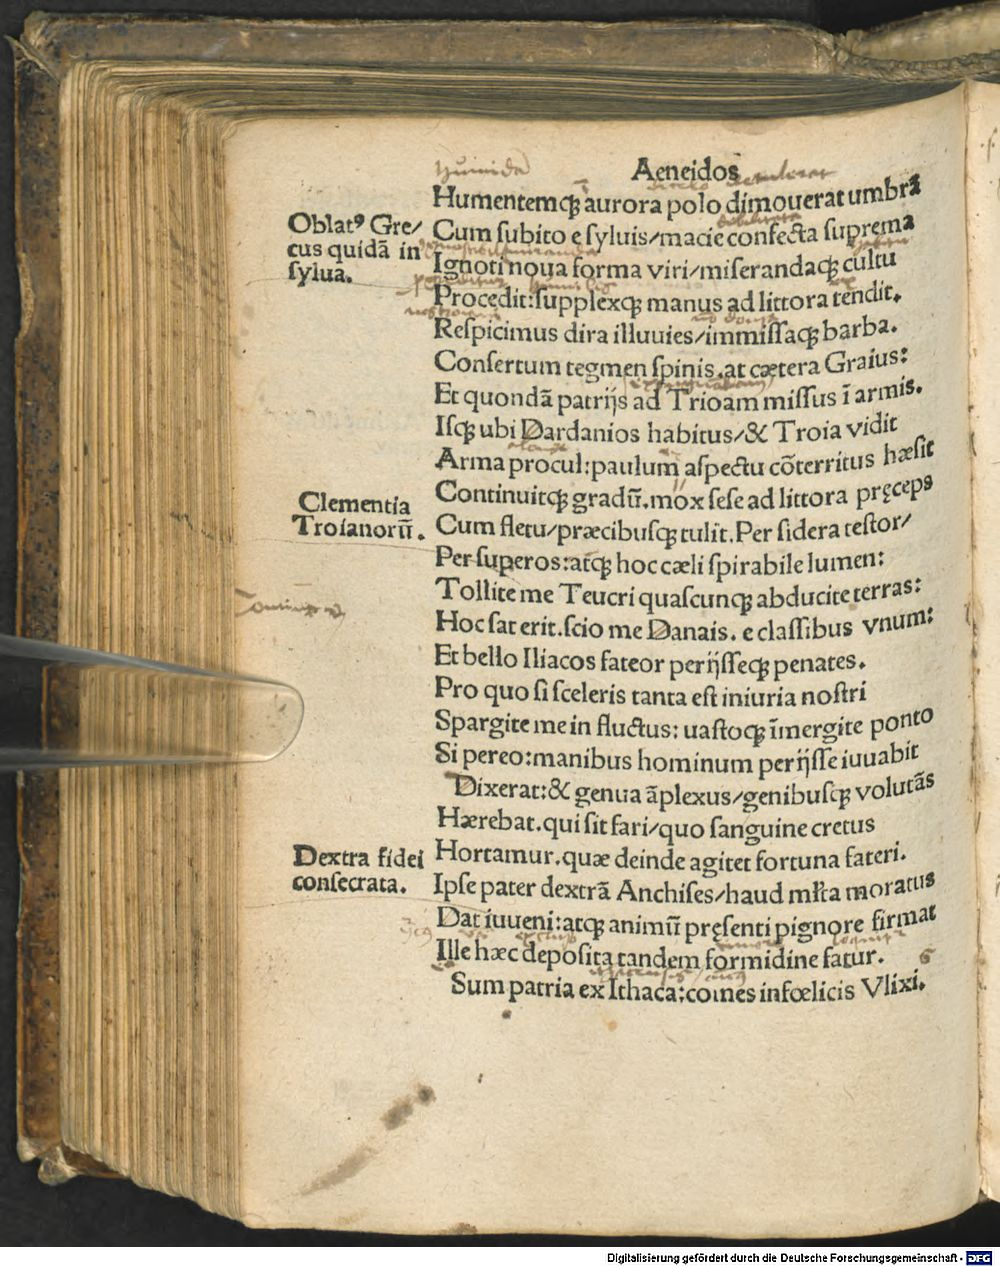 Aeneidos
Humentemqꝫ aurora polo dimouerat umbrã
Cum subito e syluis/macie confecta suprema
Ignoti noua forma viri/miserandaqꝫ cultu
Procedit:supplexqꝫ manus ad littora tendit.
Respicimus dira illuuies/immissaqꝫ barba.
Consertum tegmen spinis.at cætera Graius:
Et quondã patrijs ad Trioam missus ĩ armis.
Isqꝫ ubi Dardanios habitus/& Troia vidit
Arma procul:paulum aspectu cõterritus hæsit
Continuitqꝫ gradũ.mox sese ad littora pręceps
Cum fletu/præcibusqꝫ tulit.Per sidera testor/
Per superos:atqꝫ hoc cæli spirabile lumen:
Tollite me Teucri quascunqꝫ abducite terras:
Hoc sat erit.scio me Danais. e classibus vnum:
Et bello Iliacos fateor perijsseqꝫ penates.
Pro quo si sceleris tanta est iniuria nostri
Spargite me in fluctus: uastoqꝫ ĩmergite ponto
Si pereo:manibus hominum perijsse iuuabit
Dixerat:& genua ãplexus/genibusqꝫ volutãs
Hærebat.qui sit fari/quo sanguine cretus
Hortamur.quæ deinde agitet fortuna fateri.
Ipse pater dextrã Anchises/haud młta moratus
Dat iuueni:atqꝫ animũ pręsenti pignore firmat
Ille hæc deposita tandem formidine fatur.
Sum patria ex Ithaca:comes infœlicis Vlixi.
Oblatꝰ Gre/
cus quidã in
sylua.
Clementia
Troianorũ.
Dextra fidei
consecrata.
humida
Digitalisierung gefördert durch die Deutsche Forschungsgemeinschaft - DFG